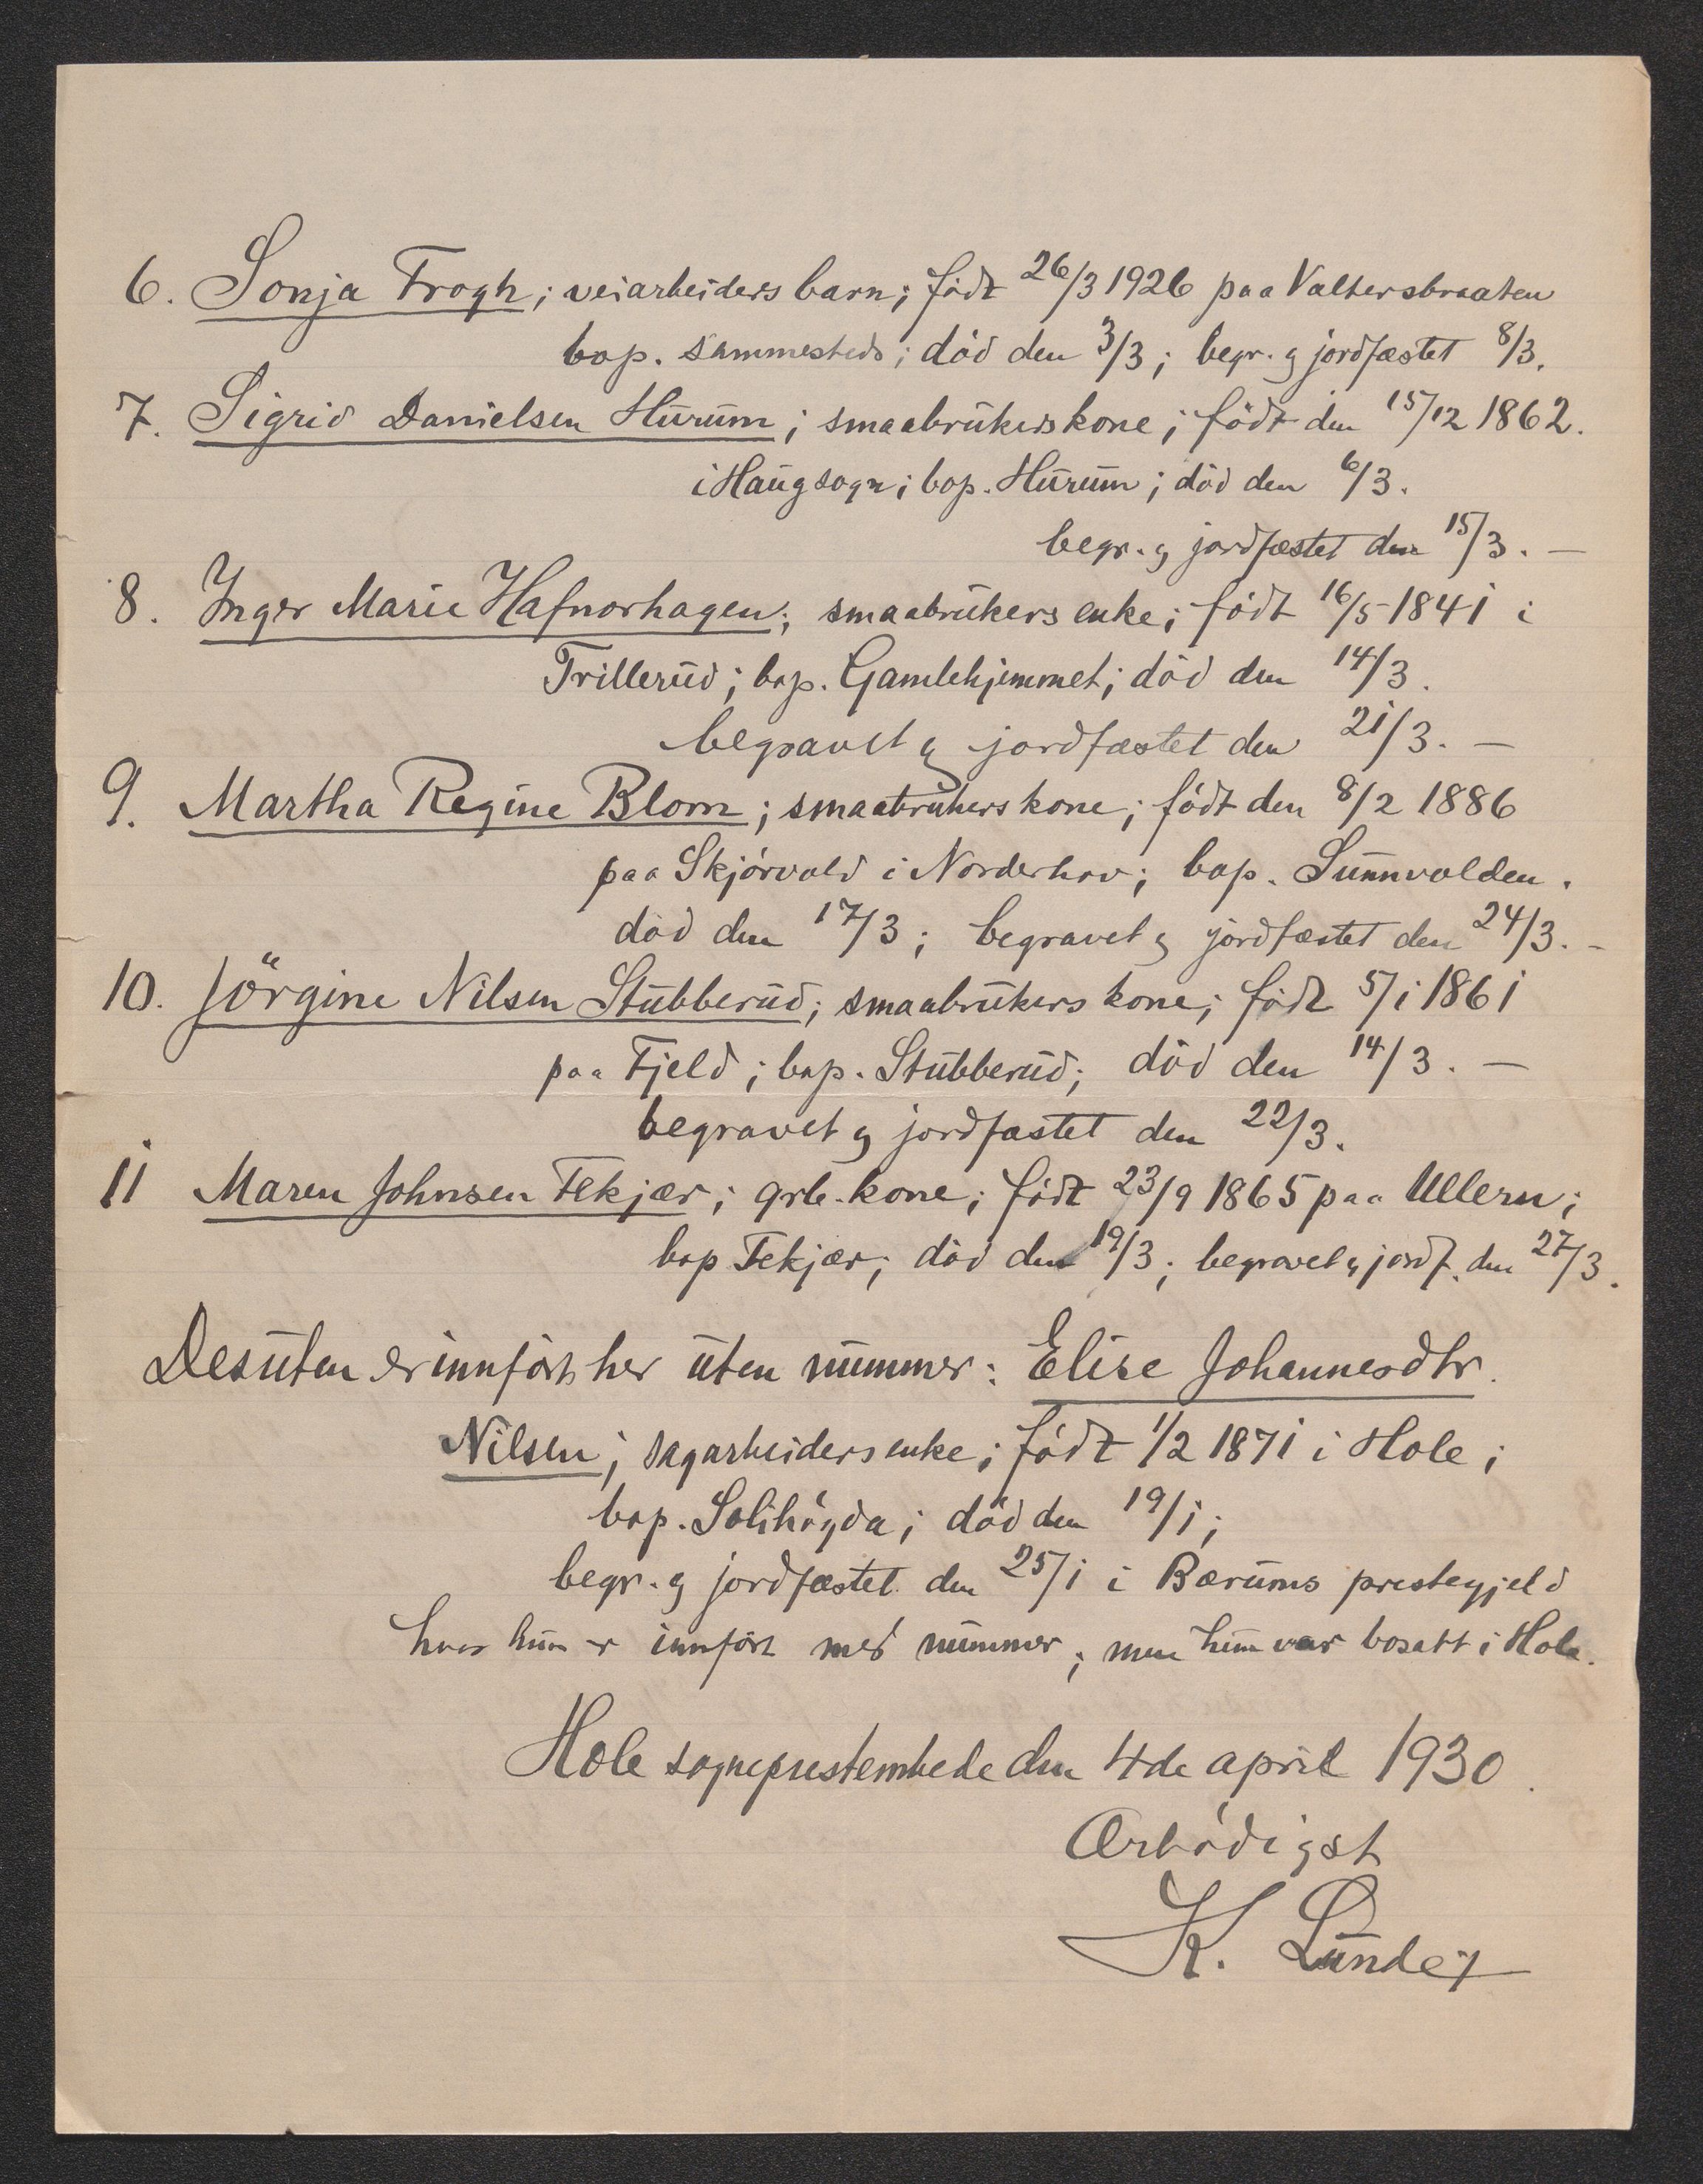 6. Sonja Frogh; veiarbeiders barn; födt 26/3 1926 paa Valtersbraaten
bop. sammesteds; död den 3/3; begr. og jordfæstet 8/3.
7. Sigrid Danielsen Hurum; smaabrukers kone; födt den 15/12 1862.
i Haug sogn; bop. Hurum; död den 6/3.
begr. og jordfæstet den 15/3. —
8. Inger Marie Hafnorhagen; smaabrukers enke; födt 16/5 1841 i
Trillerud; bop. Gamlehjemmet; död den 14/3.
begravet og jordfæstet den 21/3. —
9. Martha Regine Blom; smaabrukers kone; födt den 8/2 1886
paa Skjörvold i Norderhov; bop. Sunnvolden.
död den 17/3; begravet og jordfæstet den 24/3. -
10. Jörgine Nilsen Stubberud; smaabrukers kone; födt 5/1 1861
paa Fjeld; bop. Stubberud; död den 14/3. —
begravet og jordfæstet den 22/3.
11 Maren Johnsen Fekjær; grb. kone; födt 23/9 1865 paa Ullern;
bop Fekjær; död den 19/3; begravet og jordf. den 27/3.
Desuten er innfört her uten nummer: Elise Johannesdtr.
Nilsen; sagarbeiders enke; födt 1/2 1871 i Hole;
bop. Solihögda; död den 19/1;
begr. og jordfæstet den 25/1 i Bærums prestegjeld
hvor hun er innfört med nummer; men hun var bosatt i Hole.
Hole sogneprestembede den 4de april 1930.
Ærbödigst
K. Lunde